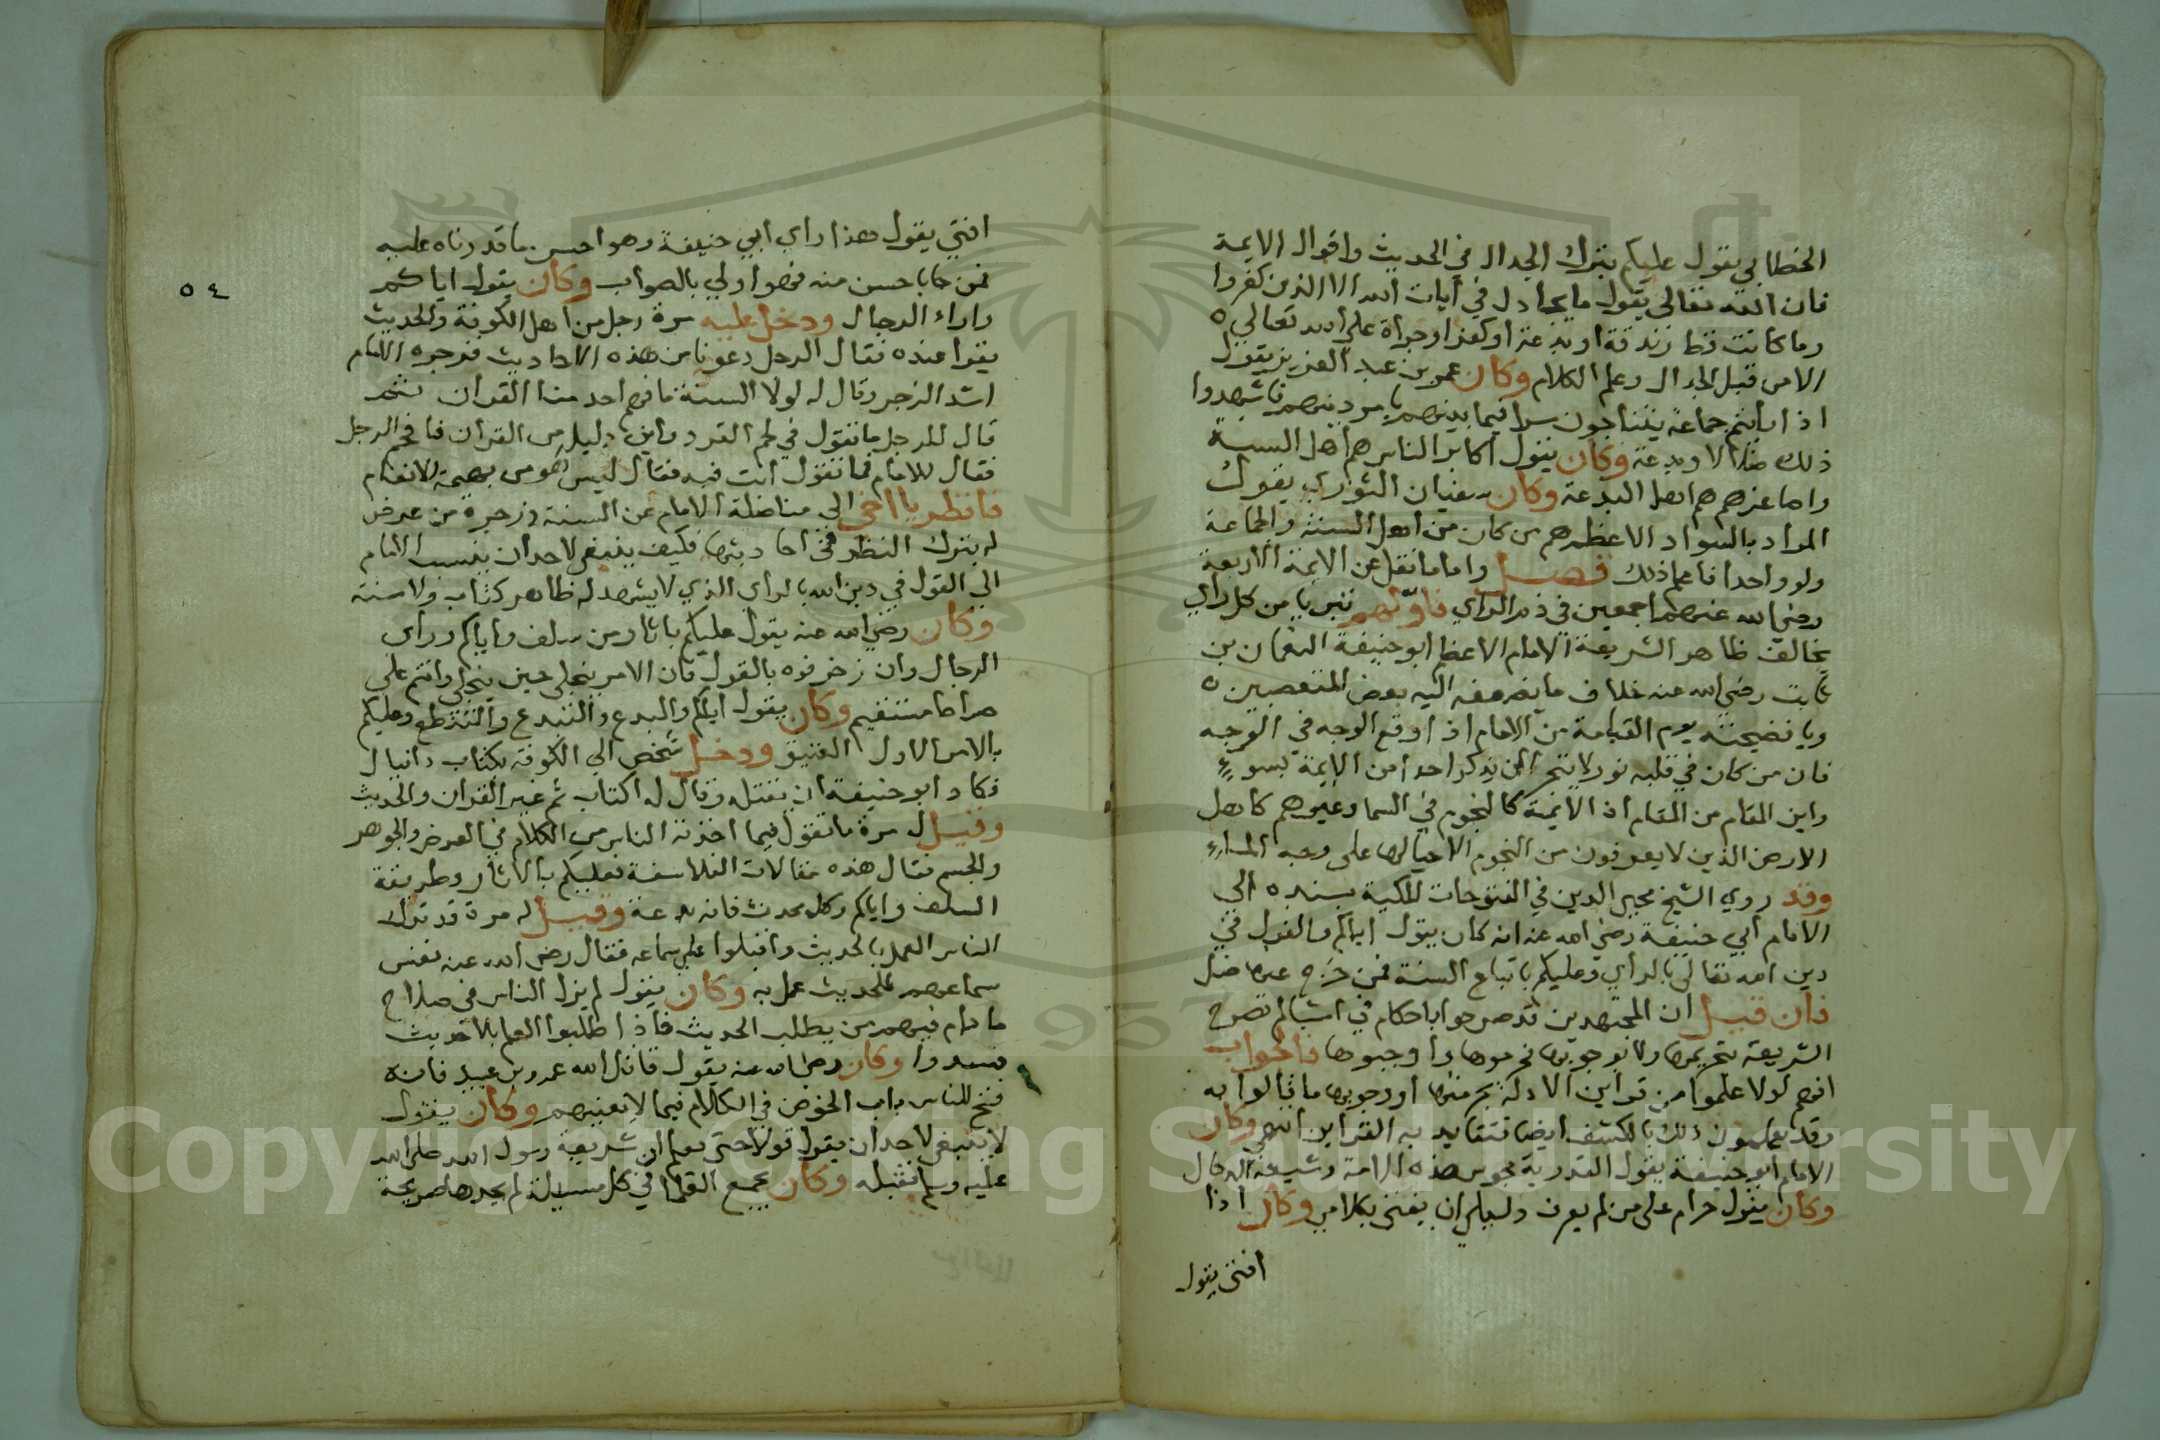 الخطابي يقول عليكم بترك الجدال في الحديث واقوال الايمة
فان الله تعالى يقول ما يجادل في آيات الله الا الذين كفروا
وما كانت قط زندقة او بدعة او كفر او جراة على الله تعالى ه
الا من قبل الجدال وعلم الكلام وكان عمر بن عبد العزيز يقول
اذا رايتم جماعة يتناجون سرا فيما بينهم بامر دينهم فاشهدوا
ذلك ضلالا وبدعة وكان يقول اكابر الناس هم اهل السنة
واصاغرهم هم اهل البدعة وكان سفيان الثوري يقول
المراد بالسواد الاعظم هم من كان من اهل السنة والجماعة
ولو واحدا فاعلم ذلك فصل واما ما نقل عن الايمة الاربعة
رضي الله عنهم اجمعين في ذم الراي فاولهم تبريا من كل راي
يخالف ظاهر الشريعة الامام الاعظم ابو حنيفة النعمان بن
ثابت رضي الله عنه خلاف ما يضيفه اليه بعض المتعصبين ه
ويا فضيحته يوم القيامة من الامام اذا وقع الوجه في الوجه
فان من كان في قلبه نور لا يتجرا ان يذكر احدا من الايمة بسوء
واين المقام من المقام اذ الايمة كالنجوم في السما وغيرهم كاهل
الارض الذين لا يعرفون من النجوم الا خيالها على وجه الماء
وقد روي الشيخ محيي الدين في الفتوحات المكية بسنده الى
الامام ابي حنيفة رضي الله عنه انه كان يقول اياكم والقول في
دين الله تعالى بالراي وعليكم باتباع السنة فمن خرج عنها ضل
فان قيل ان المجتهدين قد صرحوا باحكام في اشيا لم تصرح
الشريعة بتحريمها ولا بوجوبها فحرموها واوجبوها فالجواب
انهم لولا علموا من قراين الادلة بحرمتها او وجوبها ما قالوا به
وقد يعلمون ذلك بالكشف ايضا فتتايد به القراين انتهي وكان
الامام ابو حنيفة يقول القدرية مجوس هذه الامة وشيعة الدجال
وكان يقول حرام على من لم يعرف دليلي ان يفتي بكلامي وكان اذا
افتى يقول
٥٤
افتي يقول هذا راي ابي حنيفة وهو احسن ما قدرنا عليه
فمن جا باحسن منه فهو اولي بالصواب وكان يقول اياكم
واراء الرجال ودخل عليه مرة رجل من اهل الكوفة والحديث
يقرا عنده فقال الرجل دعونا من هذه الاحاديث فزجره الامام
اشد الزجر وقال له لولا السنة ما فهم احد منا القران ثم
قال للرجل ما تقول في لحم القرد واين دليله من القران فافحم الرجل
فقال للامام فما تقول انت فيه فقال ليس هو من بهيمة الانعام
فانظر يا اخي الى مناضلة الامام عن السنة وزجره من عرض
له بترك النظر في احاديثها فكيف ينبغي لاحد ان ينسب الامام
الي القول في دين الله بالراي الذي لا يشهد له ظاهر كتاب ولا سنة
وكان رضي الله عنه يقول عليكم باثار من سلف واياكم وراي
الرجال وان زخرفوه بالقول فان الامر ينجلي حين ينجلي وانتم علي
صراط مستقيم وكان يقول اياكم والبدع والتبدع والتنطع وعليكم
بالامر الاول العتيق ودخل شخص الي الكوفة بكتاب دانيال
فكاد ابو حنيفة ان يقتله وقال له اكتاب ثم غير القران والحديث
وقيل له مرة ما تقول فيما احدثه الناس من الكلام في العرض والجوهر
والجسم فقال هذه مقالات الفلاسفة فعليكم بالاثار وطريقة
السلف واياكم وكل محدث فانه بدعة وقيل له مرة قد ترك
الناس العمل بالحديث واقبلوا على سماعه فقال رضي الله عنه نفس
سماعهم للحديث عمل به وكان يقول لم يزل الناس في صلاح
ما دام فيهم من يطلب الحديث فاذا طلبوا العلم بلا حديث
فسدوا وكان رضي الله عنه يقول قاتل الله عمرو بن عبيد فانه
فتح للناس باب الخوض في الكلام فيما لا يعنيهم وكان يقول
لا ينبغي لاحد ان يقول قولا حتى يعلم ان شريعة رسول الله صلى الله
عليه وسلم تقبله وكان يجمع العلما في كل مسالة لم يجدها صريحة
Copyright © King Saud University
1957